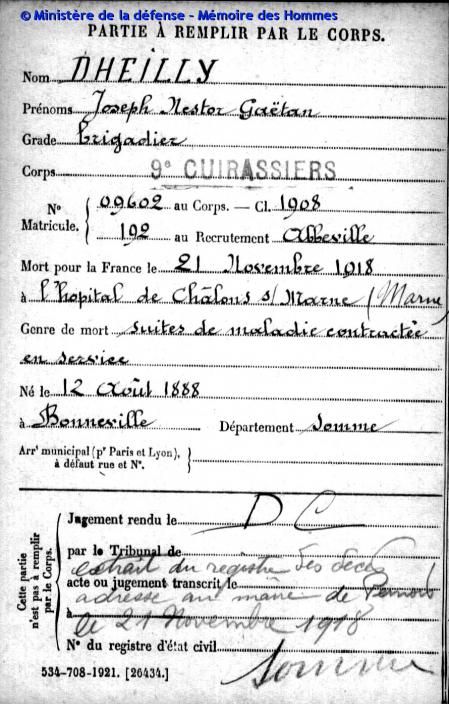 © Ministère de la défense - Mémoire des Hommes
PARTIE À REMPLIR PAR LE CORPS.
Nom DHEILLY
Prénoms Joseph Nestor Gaëtan
Grade brigadier
Corps 9e CUIRASSIERS
N° Matricule. 09602 au Corps. — Cl. 1908
192 au Recrutement Abbeville
Mort pour la France le 21 Novembre 1918
à l'hopital de Châlons s/ Marne (Marne)
Genre de mort suites de maladie contractée
en service
Né le 12 Août 1888
à Bonneville Département Somme
Arrt municipal (pr Paris et Lyon),
à défaut rue et N°.
Cette partie n'est pas à remplir par le Corps.
Jugement rendu le D C
par le Tribunal de
extrait du registre des décès
acte ou jugement transcrit le
adresse au maire de
à le 21 Novembre 1918
N° du registre d'état civil
Somme
534-708-1921. [26434.]